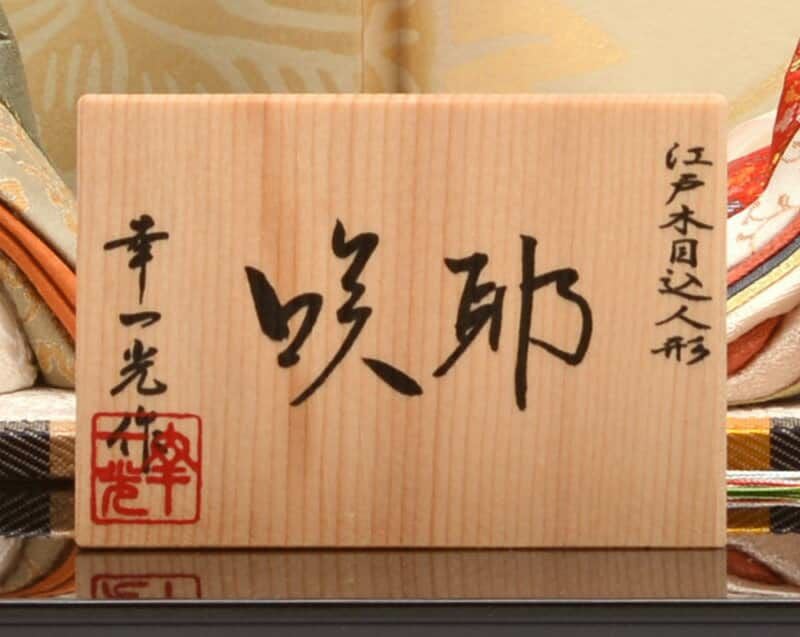 江戸木目込人形
咲耶
幸一光作
幸一光